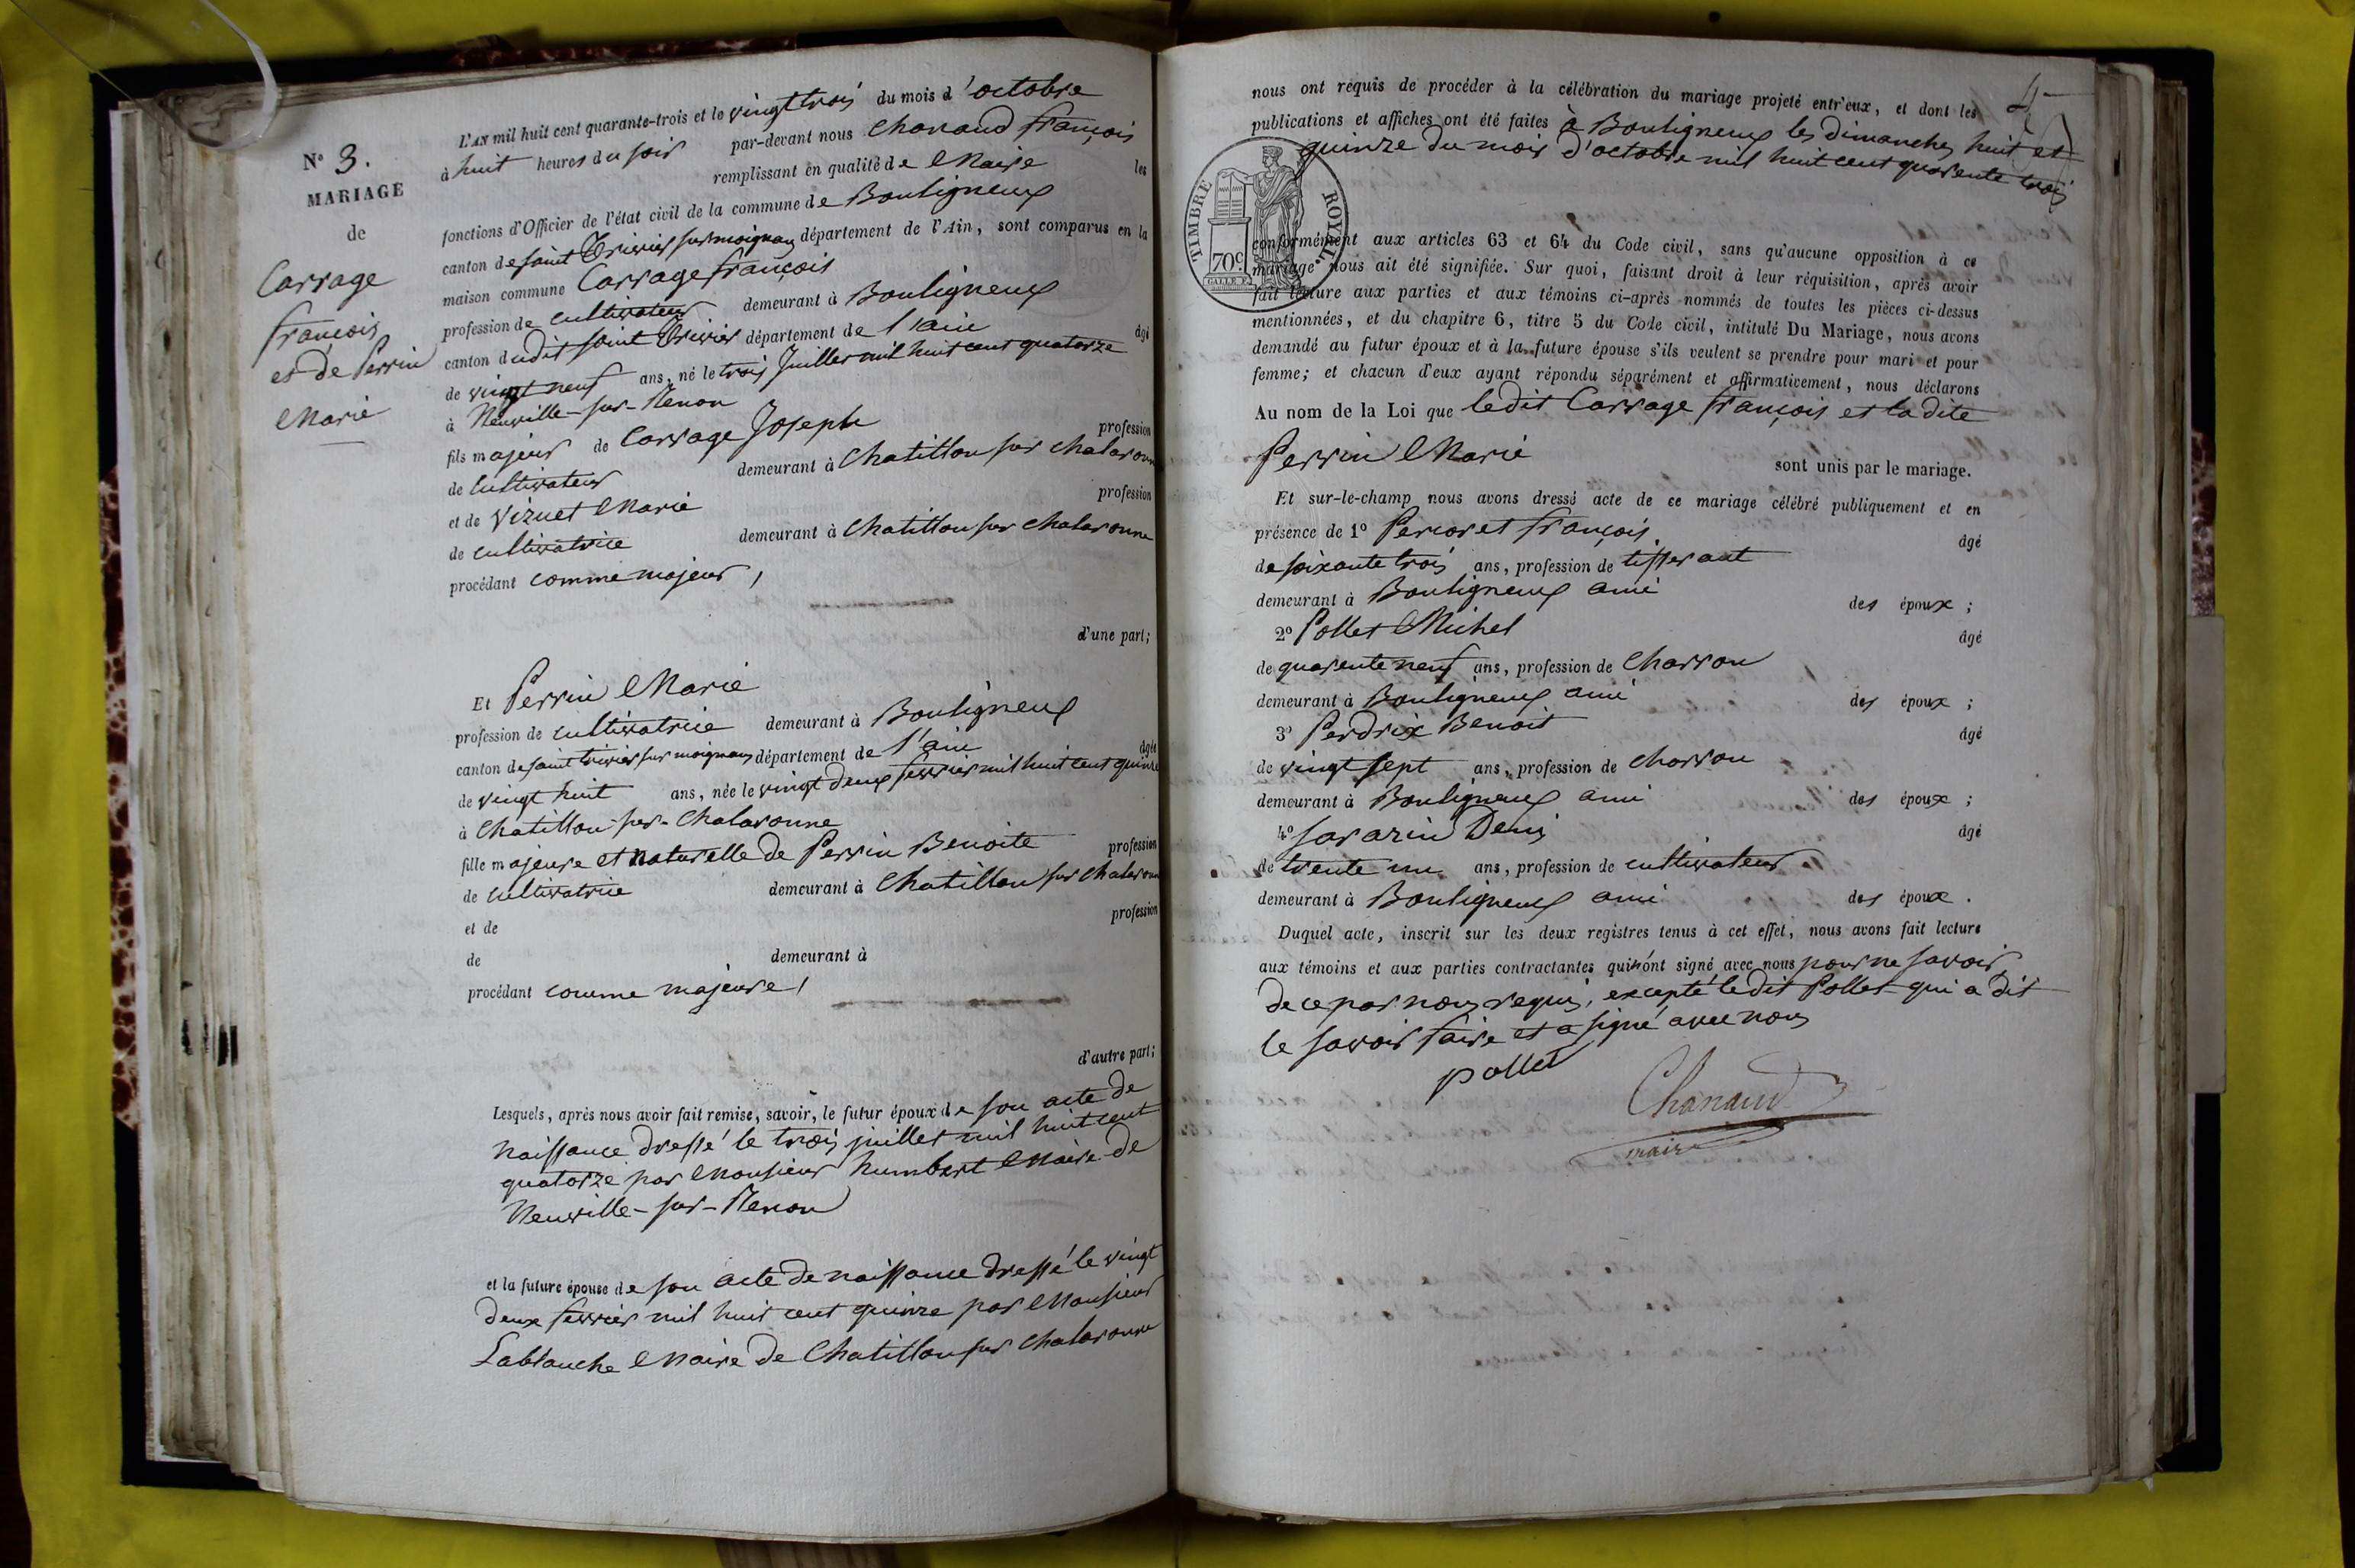 N° 3.
MARIAGE
de
Carrage
françois
et de Perrin
Marie
L'AN mil huit cent quarante-trois et le vingt trois du mois d'octobre
à huit heures du soir par-devant nous Chanaud françois
remplissant en qualité de Maire les
fonctions d'Officier de l'état civil de la commune de Bouligneux
canton de saint Trivier sur moignans département de l'Ain, sont comparus en la
maison commune Carrage françois
profession de cultivateur demeurant à Bouligneux
canton dudit saint Trivier département de l'ain âgé
de vingt neuf ans, né le trois Juillet mil huit cent quatorze
à Neuville-sur-Renon
fils majeur de Carrage Joseph profession
de Cultivateur demeurant à Chatillon sur chalaronne
et de Vizuet Marie profession
de cultivatrice demeurant à Chatillon sur chalaronne
procédant comme majeur,
d'une part;
Et Perrin Marie
profession de cultivatrice demeurant à Bouligneux
canton de saint trivier sur moignans département de l'ain âgée
de vingt huit ans, née le vingt deux fevrier mil huit cent quinze
à Chatillon-sur-Chalaronne
fille majeure et naturelle de Perrin Benoite profession
de cultivatrice demeurant à Chatillon sur chalaronne
et de profession
de demeurant à
procédant comme majeure,
d'autre part;
Lesquels, après nous avoir fait remise, savoir, le futur époux de son acte de
naissance dressé le trois juillet mil huit cent
quatorze par Monsieur humbert Maire de
Neuville-sur-Renon
et la future épouse de son acte de naissance dressé le vingt
deux fevrier mil huit cent quinze par Monsieur
Lablanche Maire de Chatillon sur chalaronne
nous ont requis de procéder à la célébration du mariage projeté entr'eux, et dont les
publications et affiches ont été faites à Bouligneux les dimanches huit et
quinze du mois d'octobre mil huit cent quarente trois
TIMBRE ROYAL.
70c
conformément aux articles 63 et 64 du Code civil, sans qu'aucune opposition à ce
mariage nous ait été signifiée. Sur quoi, faisant droit à leur réquisition, après avoir
fait lecture aux parties et aux témoins ci-après nommés de toutes les pièces ci-dessus
mentionnées, et du chapitre 6, titre 5 du Code civil, intitulé Du Mariage, nous avons
demandé au futur époux et à la future épouse s'ils veulent se prendre pour mari et pour
femme; et chacun d'eux ayant répondu séparément et affirmativement, nous déclarons
Au nom de la Loi que ledit Carrage françois et la dite
Perrin Marie sont unis par le mariage.
Et sur-le-champ nous avons dressé acte de ce mariage célébré publiquement et en
présence de 1° Perroret françois âgé
de soixante trois ans, profession de tisserant
demeurant à Bouligneux ami des époux;
2° Pollet Michel âgé
de quarente neuf ans, profession de Charron
demeurant à Bouligneux ami des époux;
3° Perdrix Benoit âgé
de vingt sept ans, profession de charron
demeurant à Bouligneux ami des époux;
4° Savarin Denis âgé
de trente un ans, profession de cultivateur
demeurant à Bouligneux ami des époux.
Duquel acte, inscrit sur les deux registres tenus à cet effet, nous avons fait lecture
aux témoins et aux parties contractantes qui n'ont signé avec nous pour ne savoir
de ce par nous requis, excepté ledit Pollet qui a dit
le savoir faire et a signé avec nous
pollet
Chanaud
maire